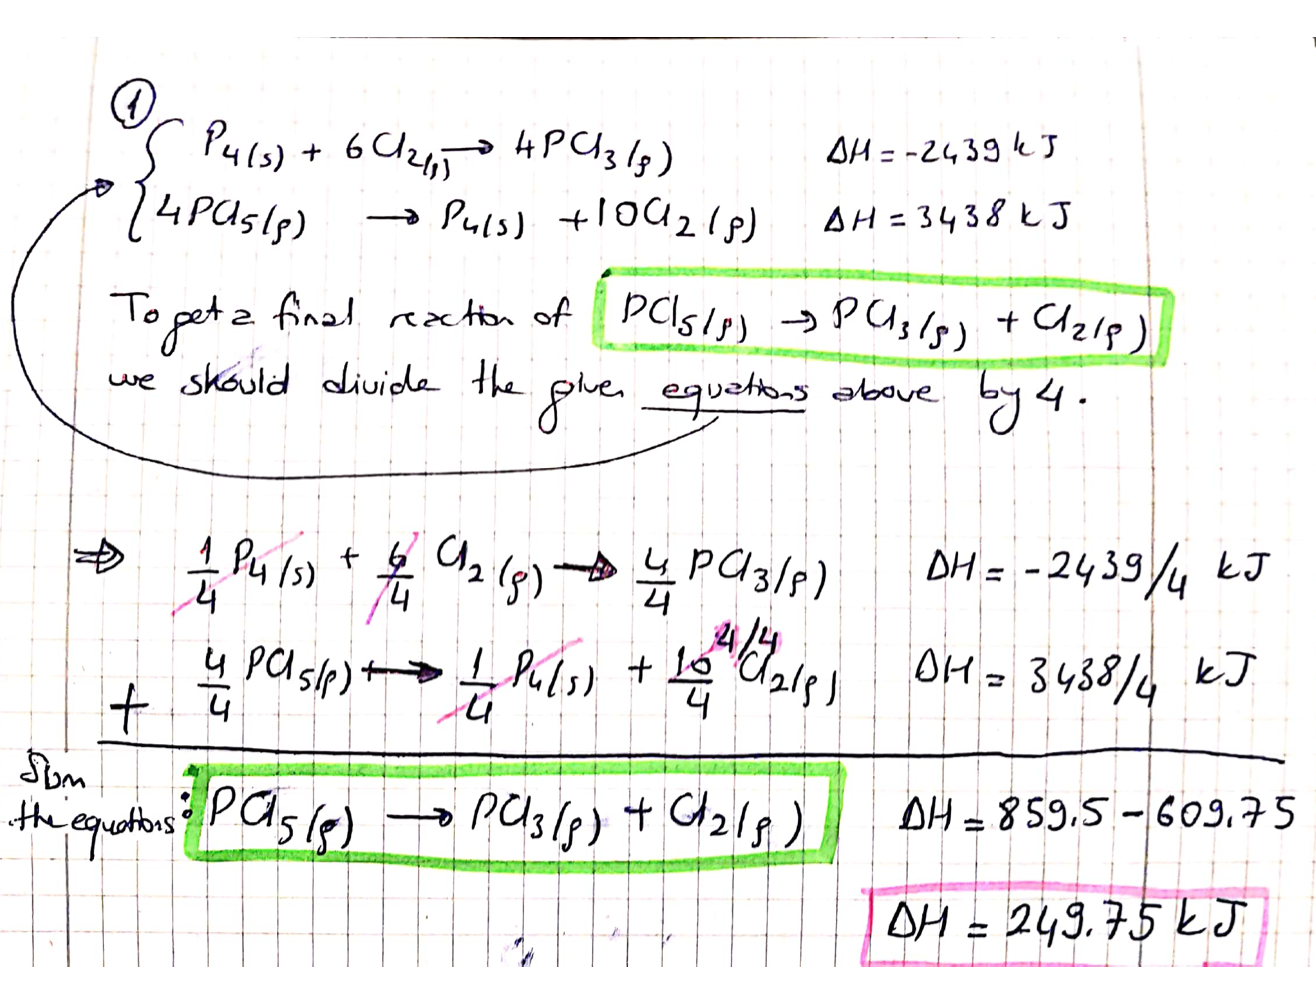 ①
P4(s) + 6Cl2(g) → 4PCl3(g) ΔH = -2439 kJ
4PCl5(g) → P4(s) + 10Cl2(g) ΔH = 3438 kJ
To get a final reaction of PCl5(g) → PCl3(g) + Cl2(g)
we should divide the given equations above by 4.
⇒ 1/4 P4(s) + 6/4 Cl2(g) → 4/4 PCl3(g) ΔH = -2439/4 kJ
4/4
+ 4/4 PCl5(g) → 1/4 P4(s) + 10/4 Cl2(g) ΔH = 3438/4 kJ
Sum
the equations: PCl5(g) → PCl3(g) + Cl2(g) ΔH = 859.5 - 609.75
ΔH = 249.75 kJ